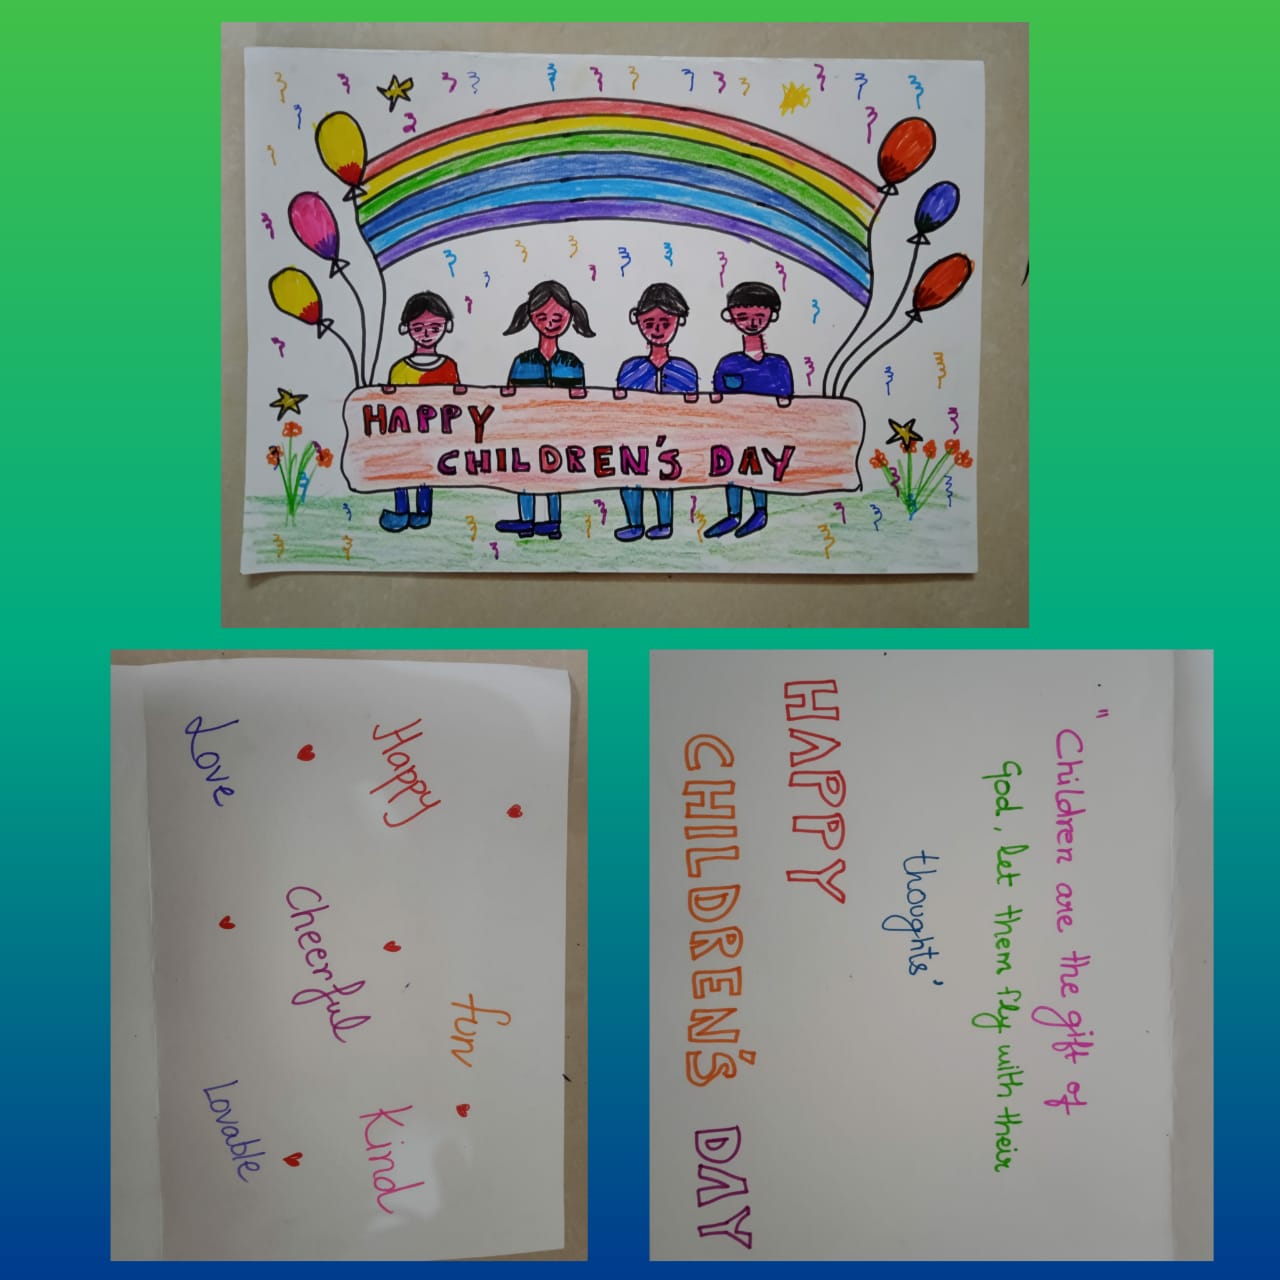 HAPPY
CHILDREN'S DAY
Happy
Love
Cheerful
fun
Kind
Lovable
"Children are the gift of
God, let them fly with their
thoughts'
HAPPY
CHILDREN'S DAY